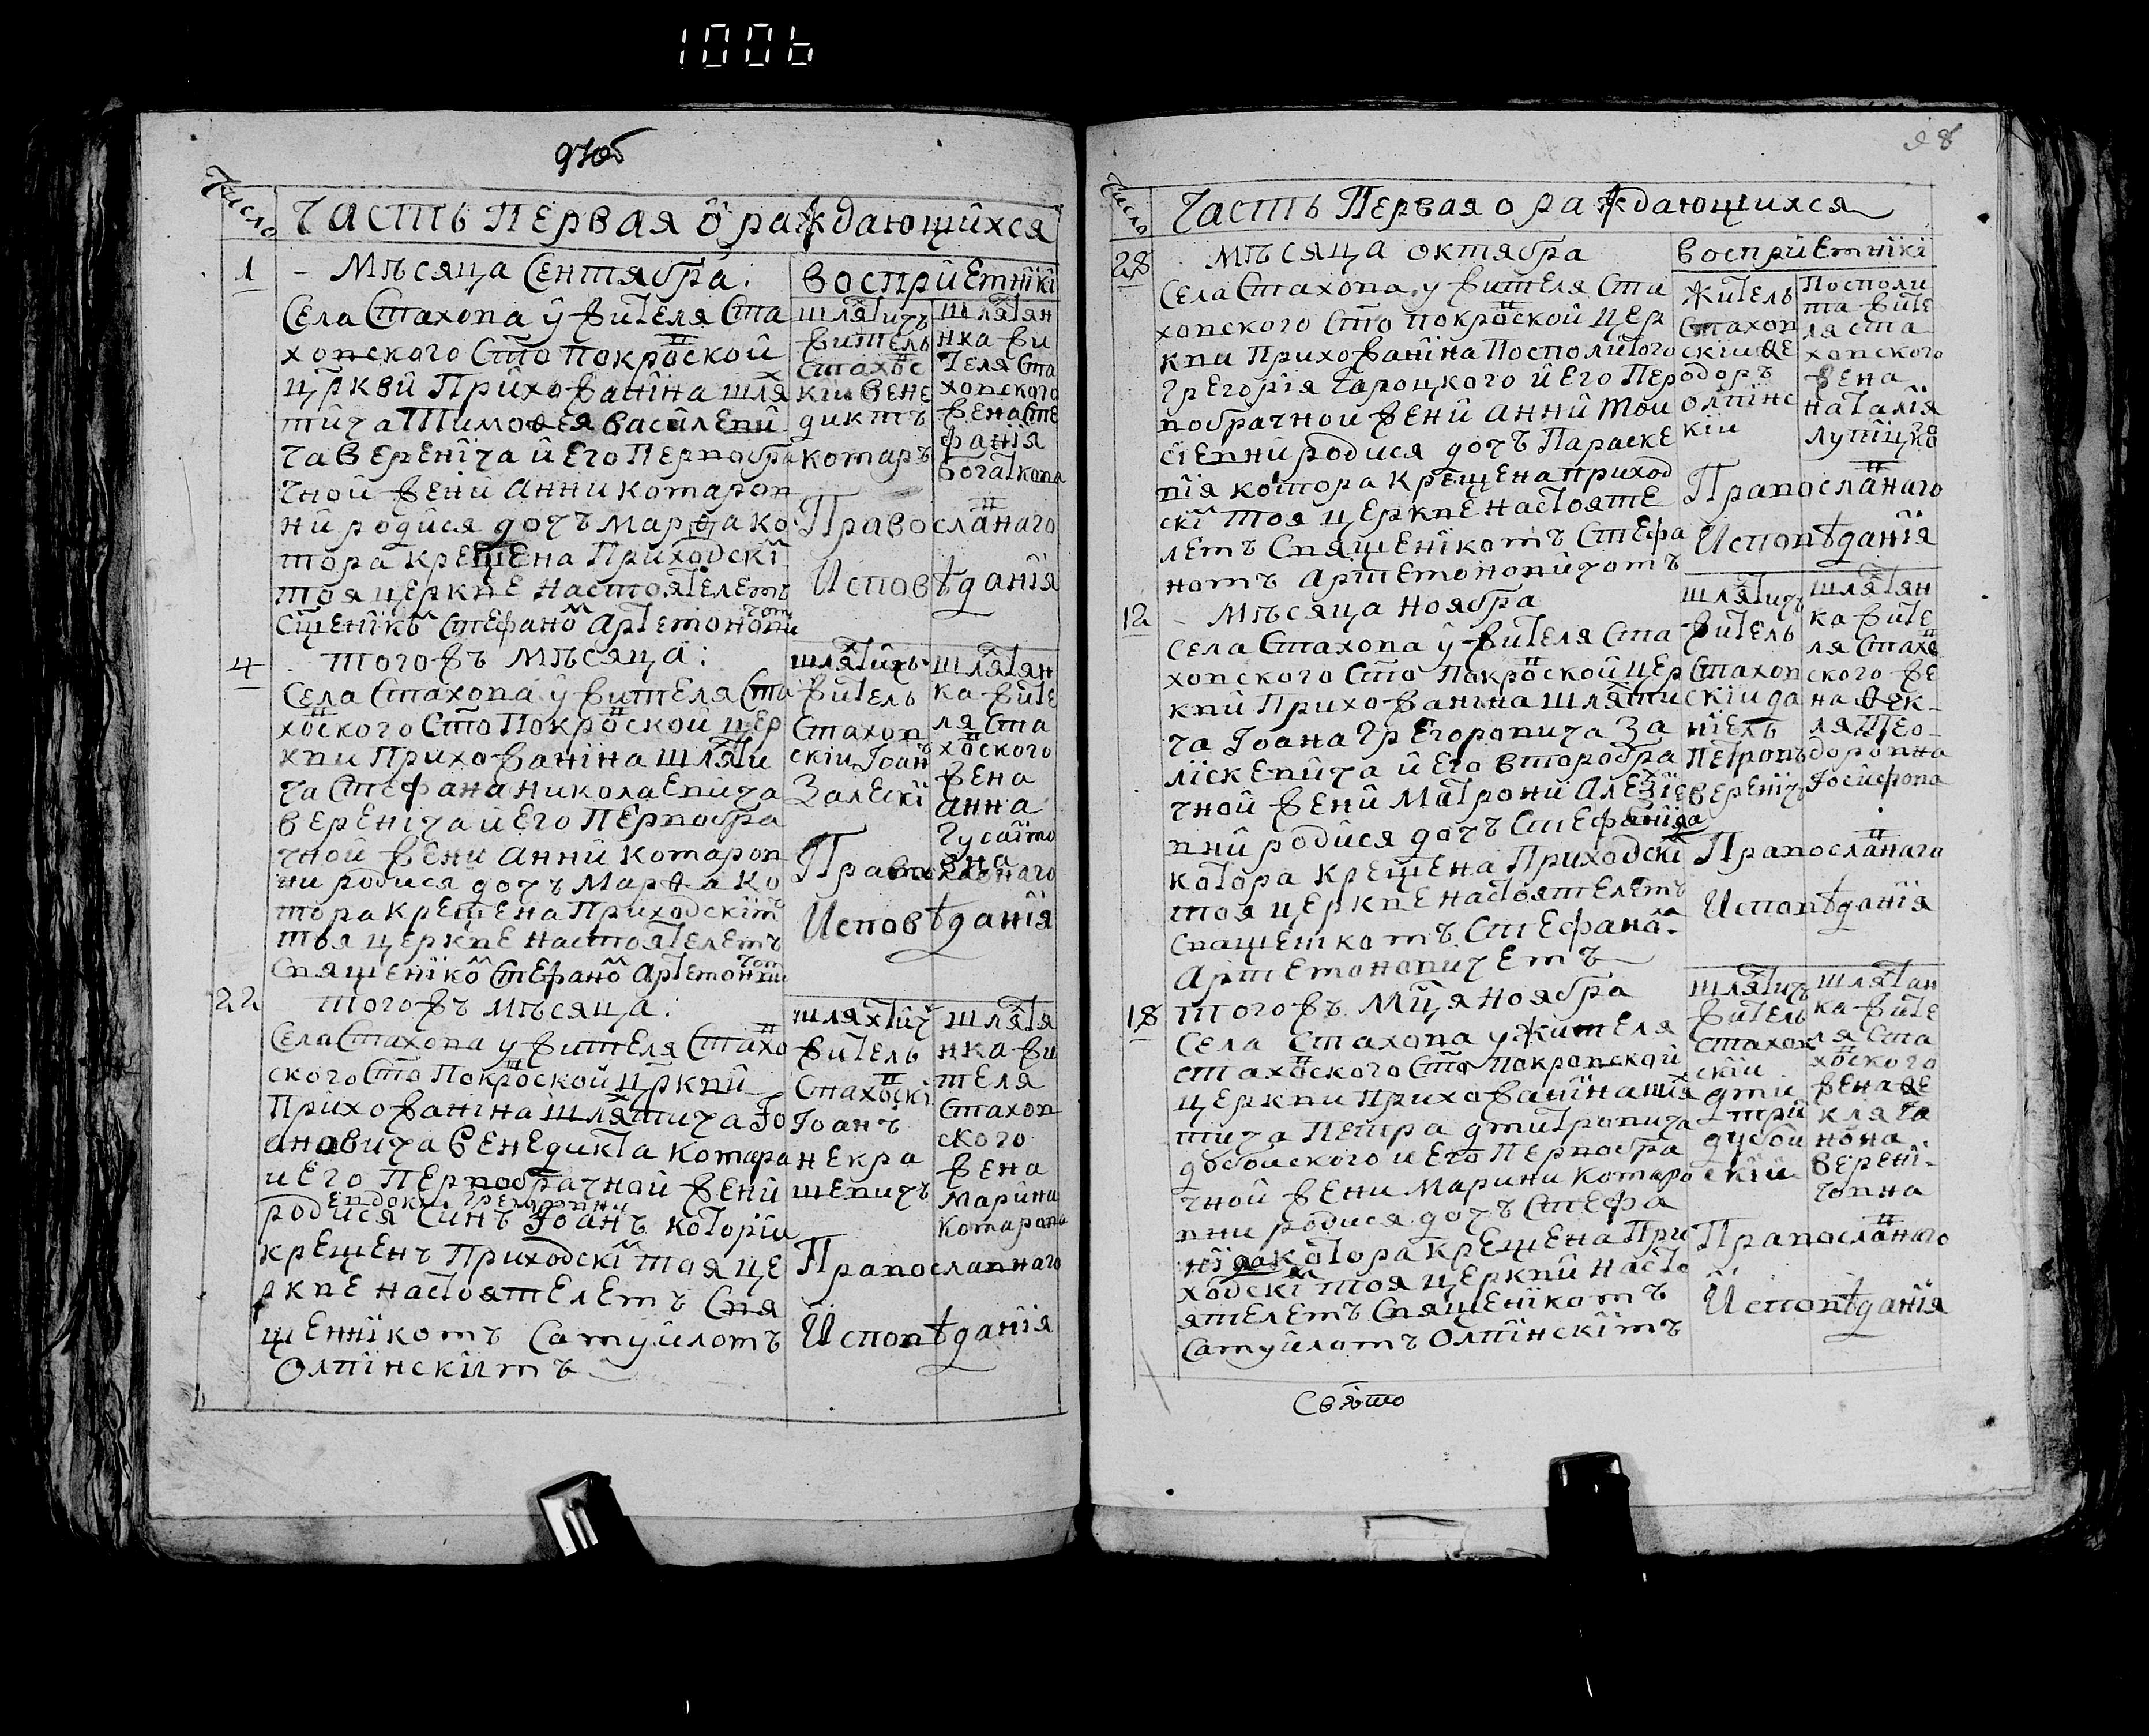 1006
97об
Число
Часть Первая ѡ раждающихся
1
Мѣсяца Сентября:
восприемники
Села Стахова у жителя Ста
ховского Сто покровской
цркви Прихожанина шлях
тича Тимофея василеви
ча Веренича и Его Первобра
чной жени Анни Котаров
ни родися дочъ Марѳа ко
тора крещена Приходским
тоя церкве настоятелемъ
Сщеником Стефаном Артемонови
чом
шлятичъ
житель
Стахов
кии Вене
диктъ
котаръ
шлятян
нка жи
теля Ста
ховского
жена Сте
фанія
богаткова
Православнаго
Исповѣданія
4
тогожъ мѣсяца:
Села Стахова у жителя Ста
ховского Сто Покровской цер
кви Прихожанина шляхти
ча Стефана Николаевича
Веренича и Его Первобра
чной жени Анни Котаров
ни родися дочъ Марѳа ко
тора крещена Приходскимъ
тоя церкве настоятелемъ
Священиком Стефаном Артемонови
чом
шляхтичъ
житель
Стахов
скии Іоан
Залескі
шляхтян
ка жите
ля Ста
ховского
жена
анна
Православнаго
Исповѣданія
22
тогожъ мѣсяца:
Села Стахова у жителя Стахов
ского Сто Покровской цркви
Прихожанина шляхтича Іо
ановича Венедикта Котара
и Его Первобрачной жени
Евдокии Грегоровни
родися Синъ Іоанъ которіи
крещенъ Приходским тоя це
ркве настоятелемъ Свя
щенникомъ Самуиломъ
Олпінскіимъ
шляхтич
житель
Стаховскі
Іоанъ
некра
шевичъ
шляхтя
нка жи
теля
Стахов
ского
жена
Марина
Котарова
Православнаго
Исповѣданія
98
Число
Часть Первая о раждающихся
28
Мѣсяца октября
восприемники
Села Стахова у жителя Ста
ховского Сто покровской цер
кви Прихожанина Посполитого
Грегорія Гароцкого и Его Пер
вобрачной жени анни Мои
сіевни родися дочъ Параске
вія котора крещена приход
скі тоя церкве настояте
лемъ Священікомъ Стефа
номъ Артемоновичомъ
житель
Стахов
скии Ѳе
одоръ
олпінс
кіи
Посполи
та жите
ля ста
ховского
жена
наталія
лупіцко
го
Православнаго
Исповѣданія
12
Мѣсяца ноября
села Стахова у жителя Ста
ховского Сто Покровской цер
кви Прихожанина шляхти
ча Іоана Грегоровича За
ліскевича и Его второбра
чной жени Матрони Алекзіе
вни родися дочъ Стефаніда
котора крещена Приходскі
тоя церкве настоятелемъ
Священикомъ Стефаном
Артемоновичемъ
шлятичъ
житель
Стахов
скіи да
ніелъ
Петровъ
Вереничъ
шлятян
ка жите
ля Стахов
ского же
на Ѳек-
ля Тео-
доровна
Іосифова
Православнаго
Исповѣданія
18
тогожъ Мця ноября
Села Стахова у жителя
стаховского Сто Покровской
церкви прихожаніна шлях
тича Петра дмитровича
дубоиского и Его Первобра
чной жени Марини Котаро
вни родися дочъ Стефа
ніда котора крещена При
ходскі тоя церкви насто
ятелемъ Священікомъ
Самуиломъ Олпінскімъ
шляхтичъ
житель
стахов
скіи
дми
трій
дубои
скіи
шляхтян
ка жите
ля Ста
ховского
жена Ѳе
кля
Верені-
човна
Православнаго
Исповѣданія